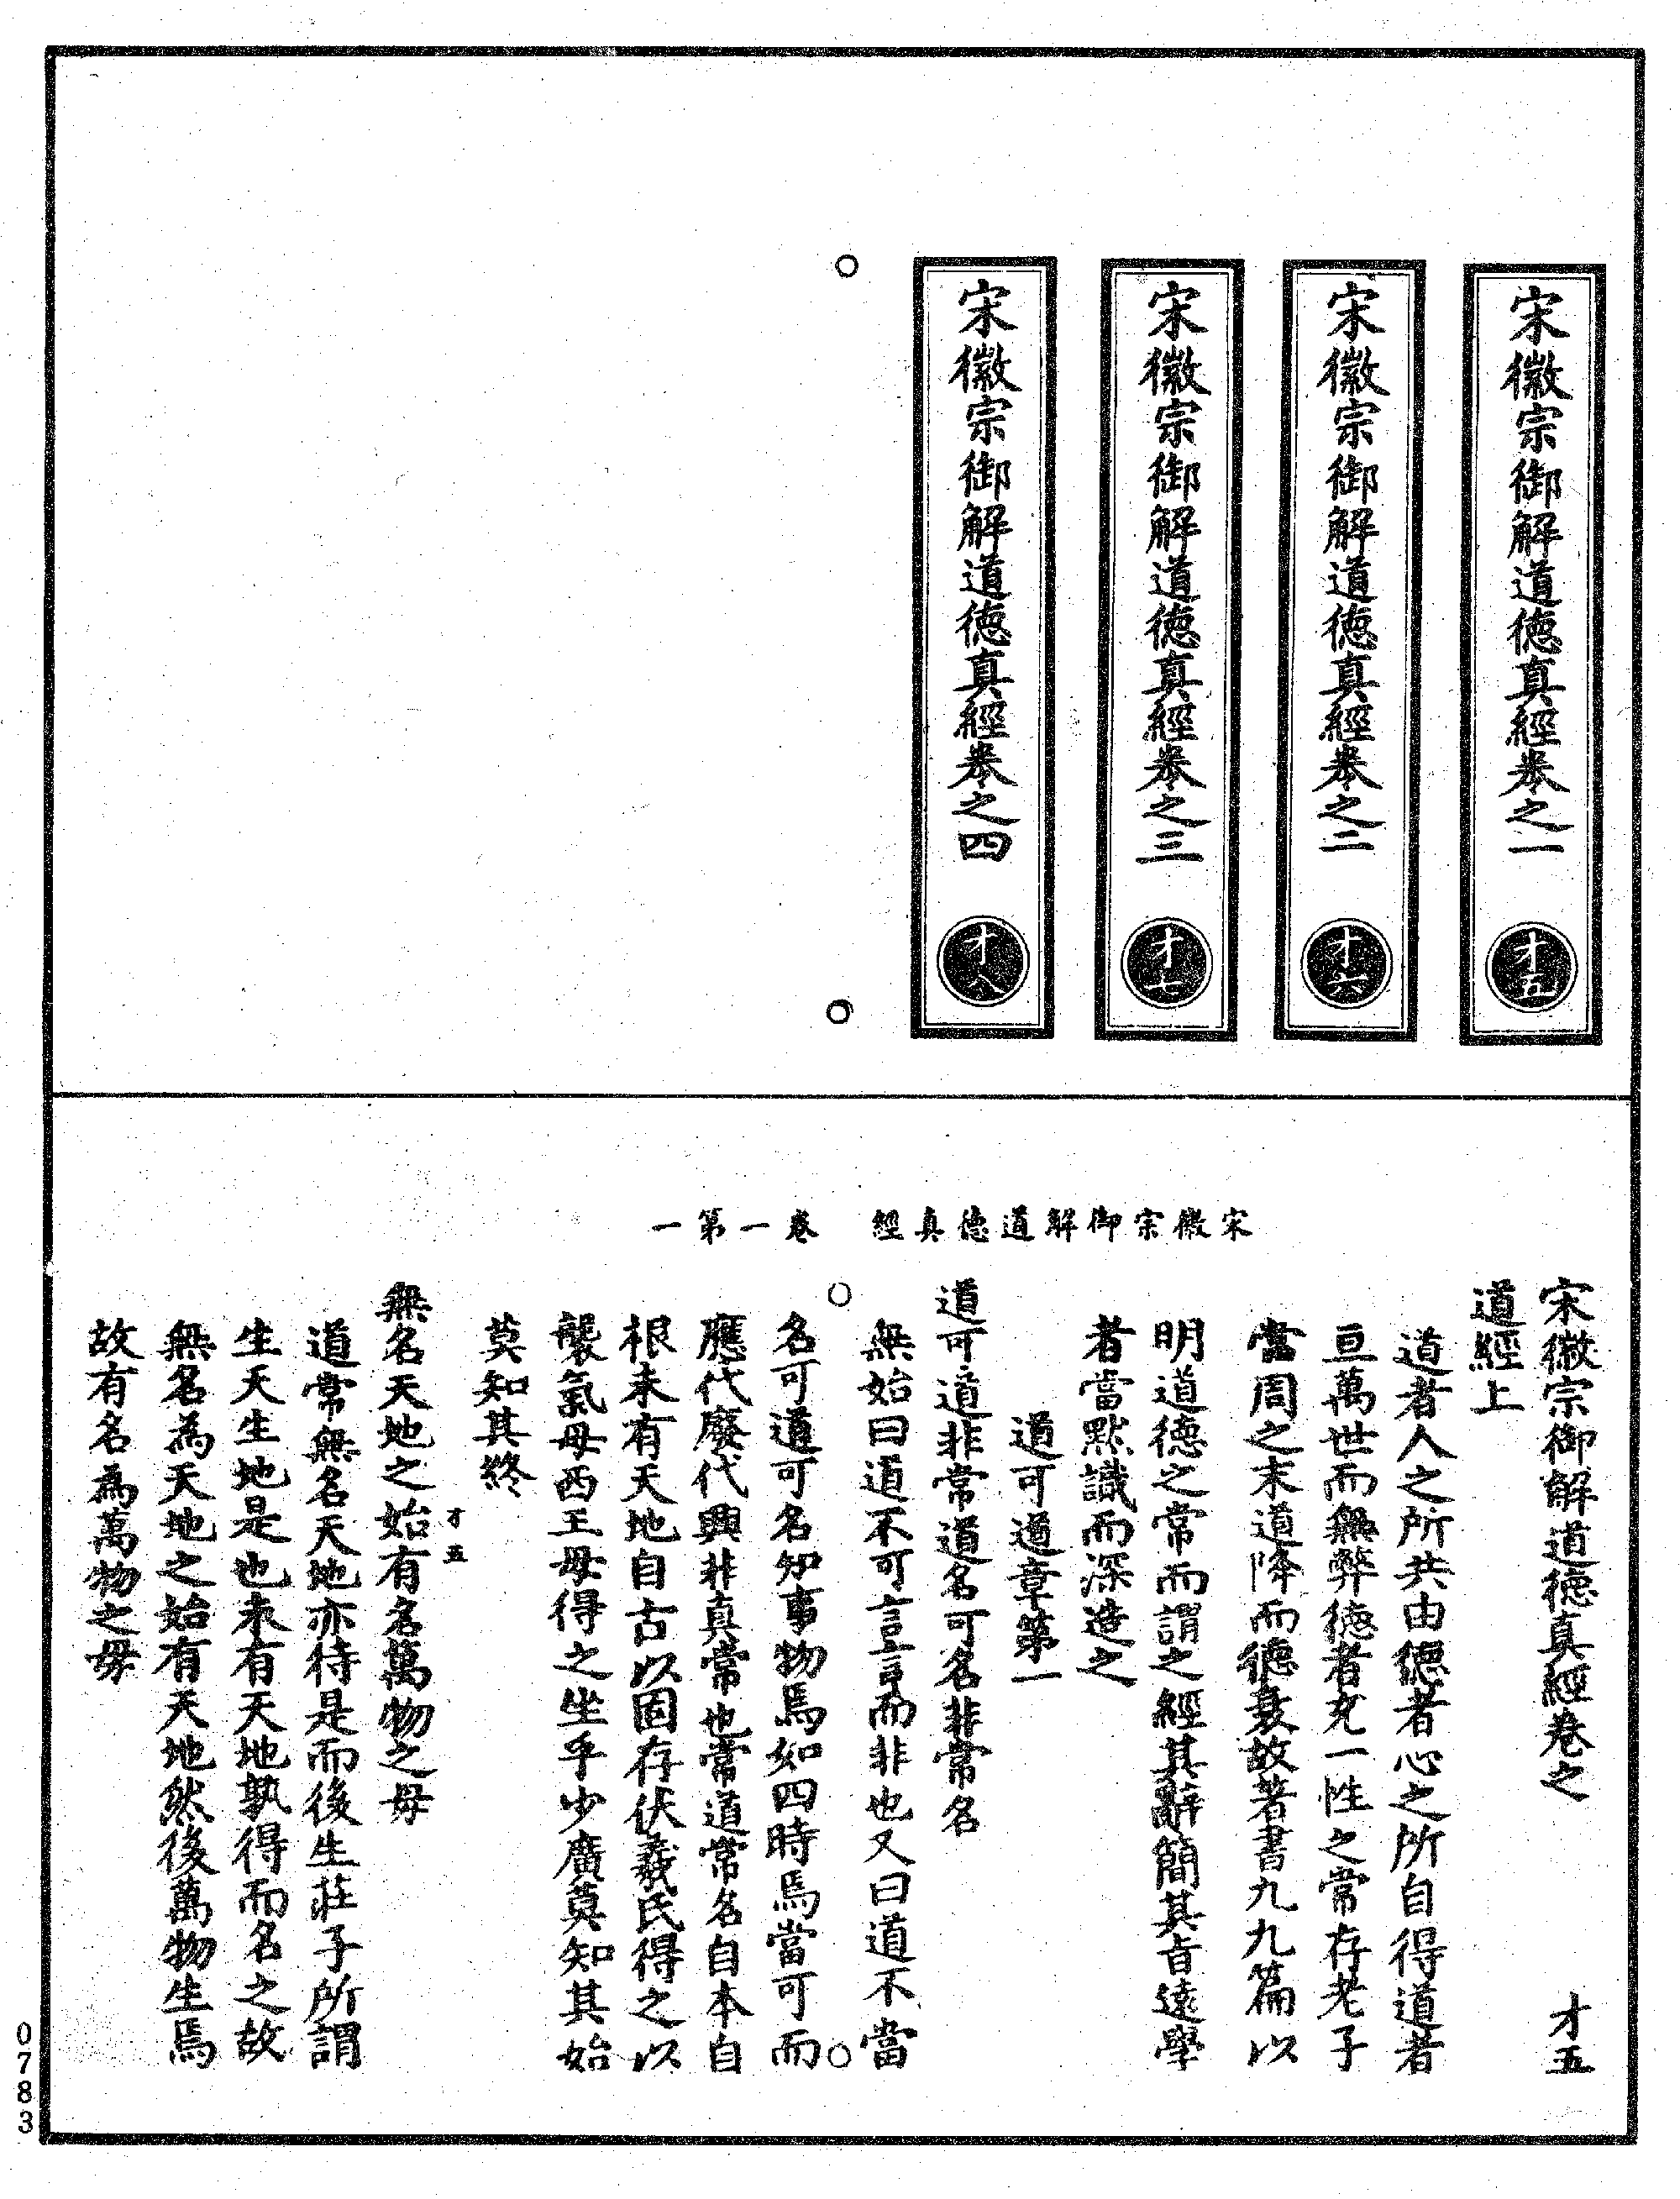 宋徽宗御解道德真經卷之一
才五
宋徽宗御解道德真經卷之二
才六
宋徽宗御解道德真經卷之三
才七
宋徽宗御解道德真經卷之四
才八
宋徽宗御解道德真經 卷一第一
宋徽宗御解道德真經卷之 才五
道經上
道者人之所共由德者心之所自得道者
亘萬世而無弊德者充一性之常存老子
當周之末道降而德衰故著書九九篇以
明道德之常而謂之經其辭簡其旨遠學
者當默識而深造之
道可道章第一
道可道非常道名可名非常名
無始曰道不可言言而非也又曰道不當
名可道可名知事物焉如四時焉當可而
應代廢代興非真常也常道常名自本自
根未有天地自古以固存伏羲氏得之以
襲氣母西王母得之坐乎少廣莫知其始
莫知其終
才五
無名天地之始有名萬物之母
道常無名天地亦待是而後生莊子所謂
生天生地是也未有天地孰得而名之故
無名為天地之始有天地然後萬物生焉
故有名為萬物之母
0783